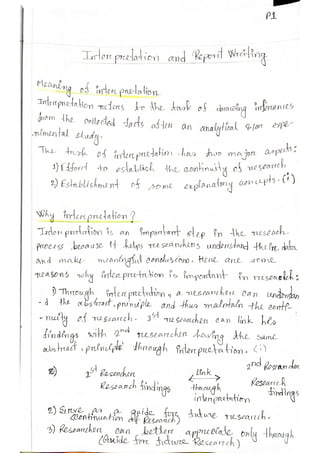 P.1
Interpretation and Report Writing.
Meaning of interpretation.
Interpretation refers to the task of drawing inferences
from the collected facts after an analytical &/or expe-
rimental study.
The task of interpretation has two major aspects:
1) Effort to establish the continuity of research
2) Establishment of some explanatory concepts. (i)
Why interpretation?
Interpretation is an important step in the reseach
process because it helps researchers understand their data
and make meaningful conclusions. Here are some
reasons why interpretation is important in research:
1) Through interpretation, a researcher can understan
-d the abstract principle and thus maintain the conti-
-nuity of research. 1st researcher can link his
findings with 2nd researcher having the same
abstract principle through interpretation. (i)
1st Researcher
Link
2nd Researcher
Research findings
through
interpretation
Research
findings
2) Serve as a guide for future research.
(Continuation of Research)
3) Researcher can better appreciate only through
(Guide for future Research)